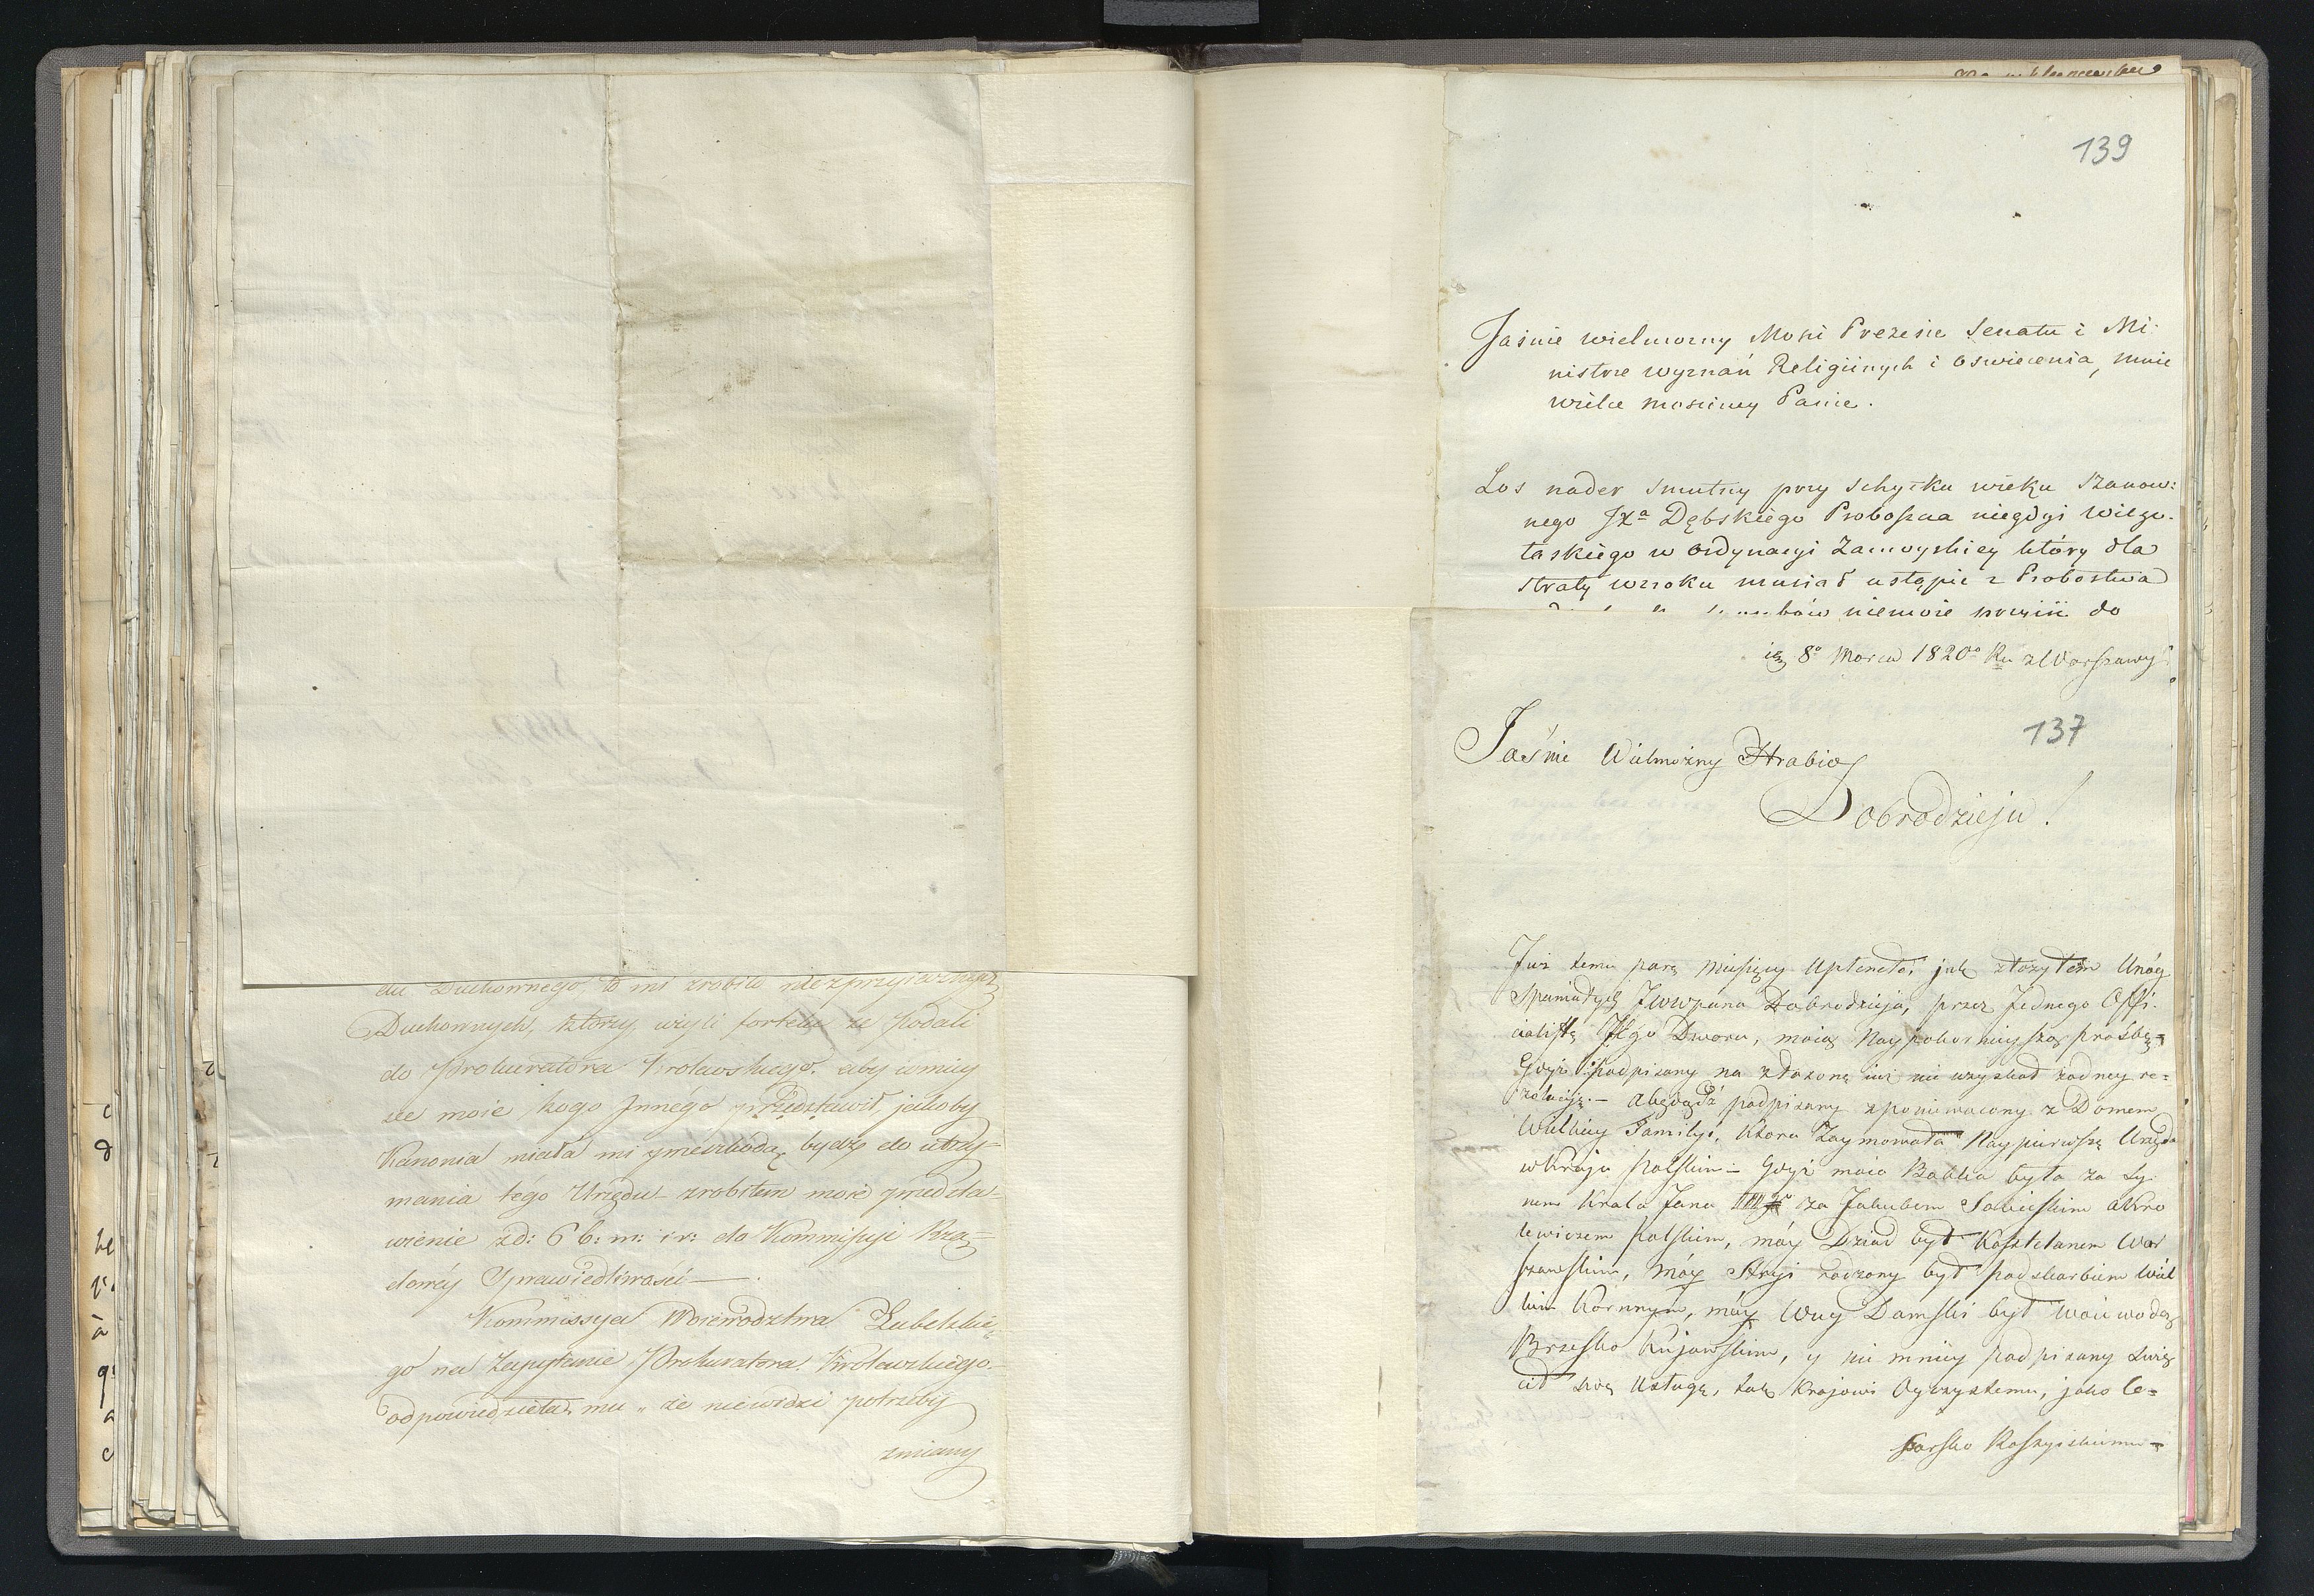 du Duchownego, to mi zrobiło nieprzyiaznych
Duchownych, którzy, użyli fortelu że podali
do Prokuratora Krolewskiego, aby w mieysce
ze moie kogo Innego przedstawił, jakoby
Kanonia miała mi przeszkodą bydź do utrzy=
mania tego Urzędu zrobiłem moie przedsta=
wienie zd: 6 b: m: i r: do Kommissyi Rzą=
dowéy Sprawiedliwości —.
Kommissya Woiewodztwa Lubelskie=
go na Zapytanie Prokuratora Krolewskiego
odpowiedziała mu „ że niewidzi potrzeby
zmiany
139
Jaśnie wielmozny Mosci Prezesie Senatu i Mi:
nistrze wyznań Religiinych i oswiecenia, mnie
wielce mosciwy Panie.
Los nader smutny przy schyłku wieku szanow:
nego JXa Dębskiego Proboszcza niegdyś Wielgo-
laskiego w Ordynacyi Zamoyskiey który dla
straty wzroku musiał ustąpić z Probostwa
niemoże przyiść do
8o Marca 1820o Ru z Warszawy
137
Jaśnie Wielmożny Hrabio
Dobrodzieju!
Już temu parę Miesięcy Upłeneło, jak złożyłem Unóg
Spaniałych JWWPana Dobrodzieja, przez Jednego Offi:
cialistę JEgo Dworu, moią Naypokornieyszą prośbę=
Gdyż podpisany na złożoną już nie uzyskał żadney re=
zolucyją.— Abędąć podpisany spokrewniony z Domem
Wielkiey Familyi, ktora Zaymowała Naypierwsze Urzęda
w Kraju Polskim — Gdyż moia Babka była za Sy
nem Krala Jana III za Jakubem Sobieskim Kro
lewiczem Polskim, móy Dziad był Kasztelanem War
szawskim, Móy Stryi rodzony był podskarbiem Wiel
kim Koronnym, móy Wuy Damski był Woiewodą
Brzesko Kujawskim, y nie mniey podpisany świę
cił swą Usługę, tak Krajowi Oyczystemu, jako Ce=
sarsko Roszyiskiemu=